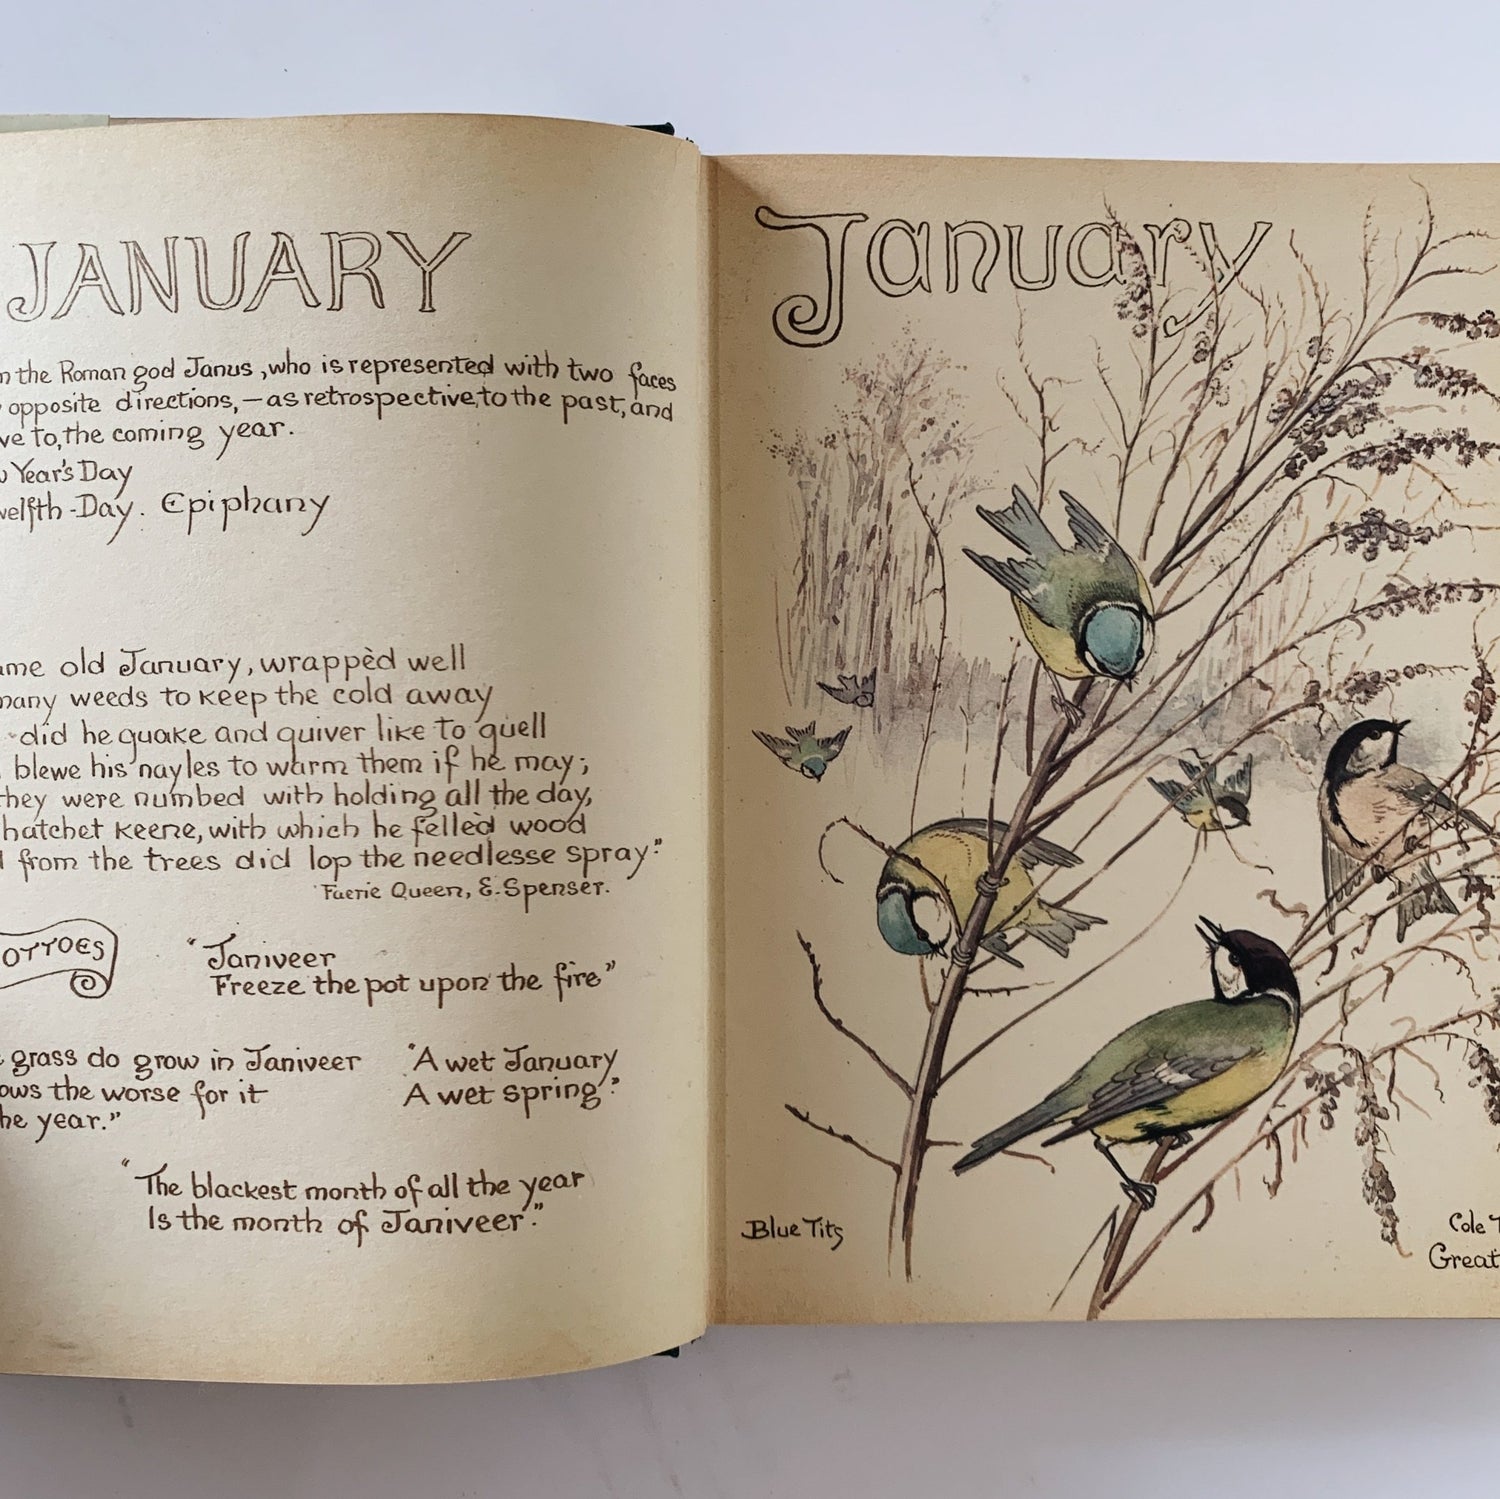 JANUARY
the Roman god Janus, who is represented with two faces
opposite directions, — as retrospective, to the past, and
to, the coming year.
Year's Day
-Day. Epiphany
old January, wrappèd well
weeds to keep the cold away
did he quake and quiver like to quell
blewe his nayles to warm them if he may;
they were numbed with holding all the day,
hatchet keene, with which he felled wood
from the trees did lop the needlesse spray."
Faerie Queen, E. Spenser.
OTTOES
"Janiveer
Freeze the pot upon the fire"
grass do grow in Janiveer
the worse for it
year."
"A wet January
A wet spring."
"The blackest month of all the year
Is the month of Janiveer."
January
Blue Tits
Cole T
Great